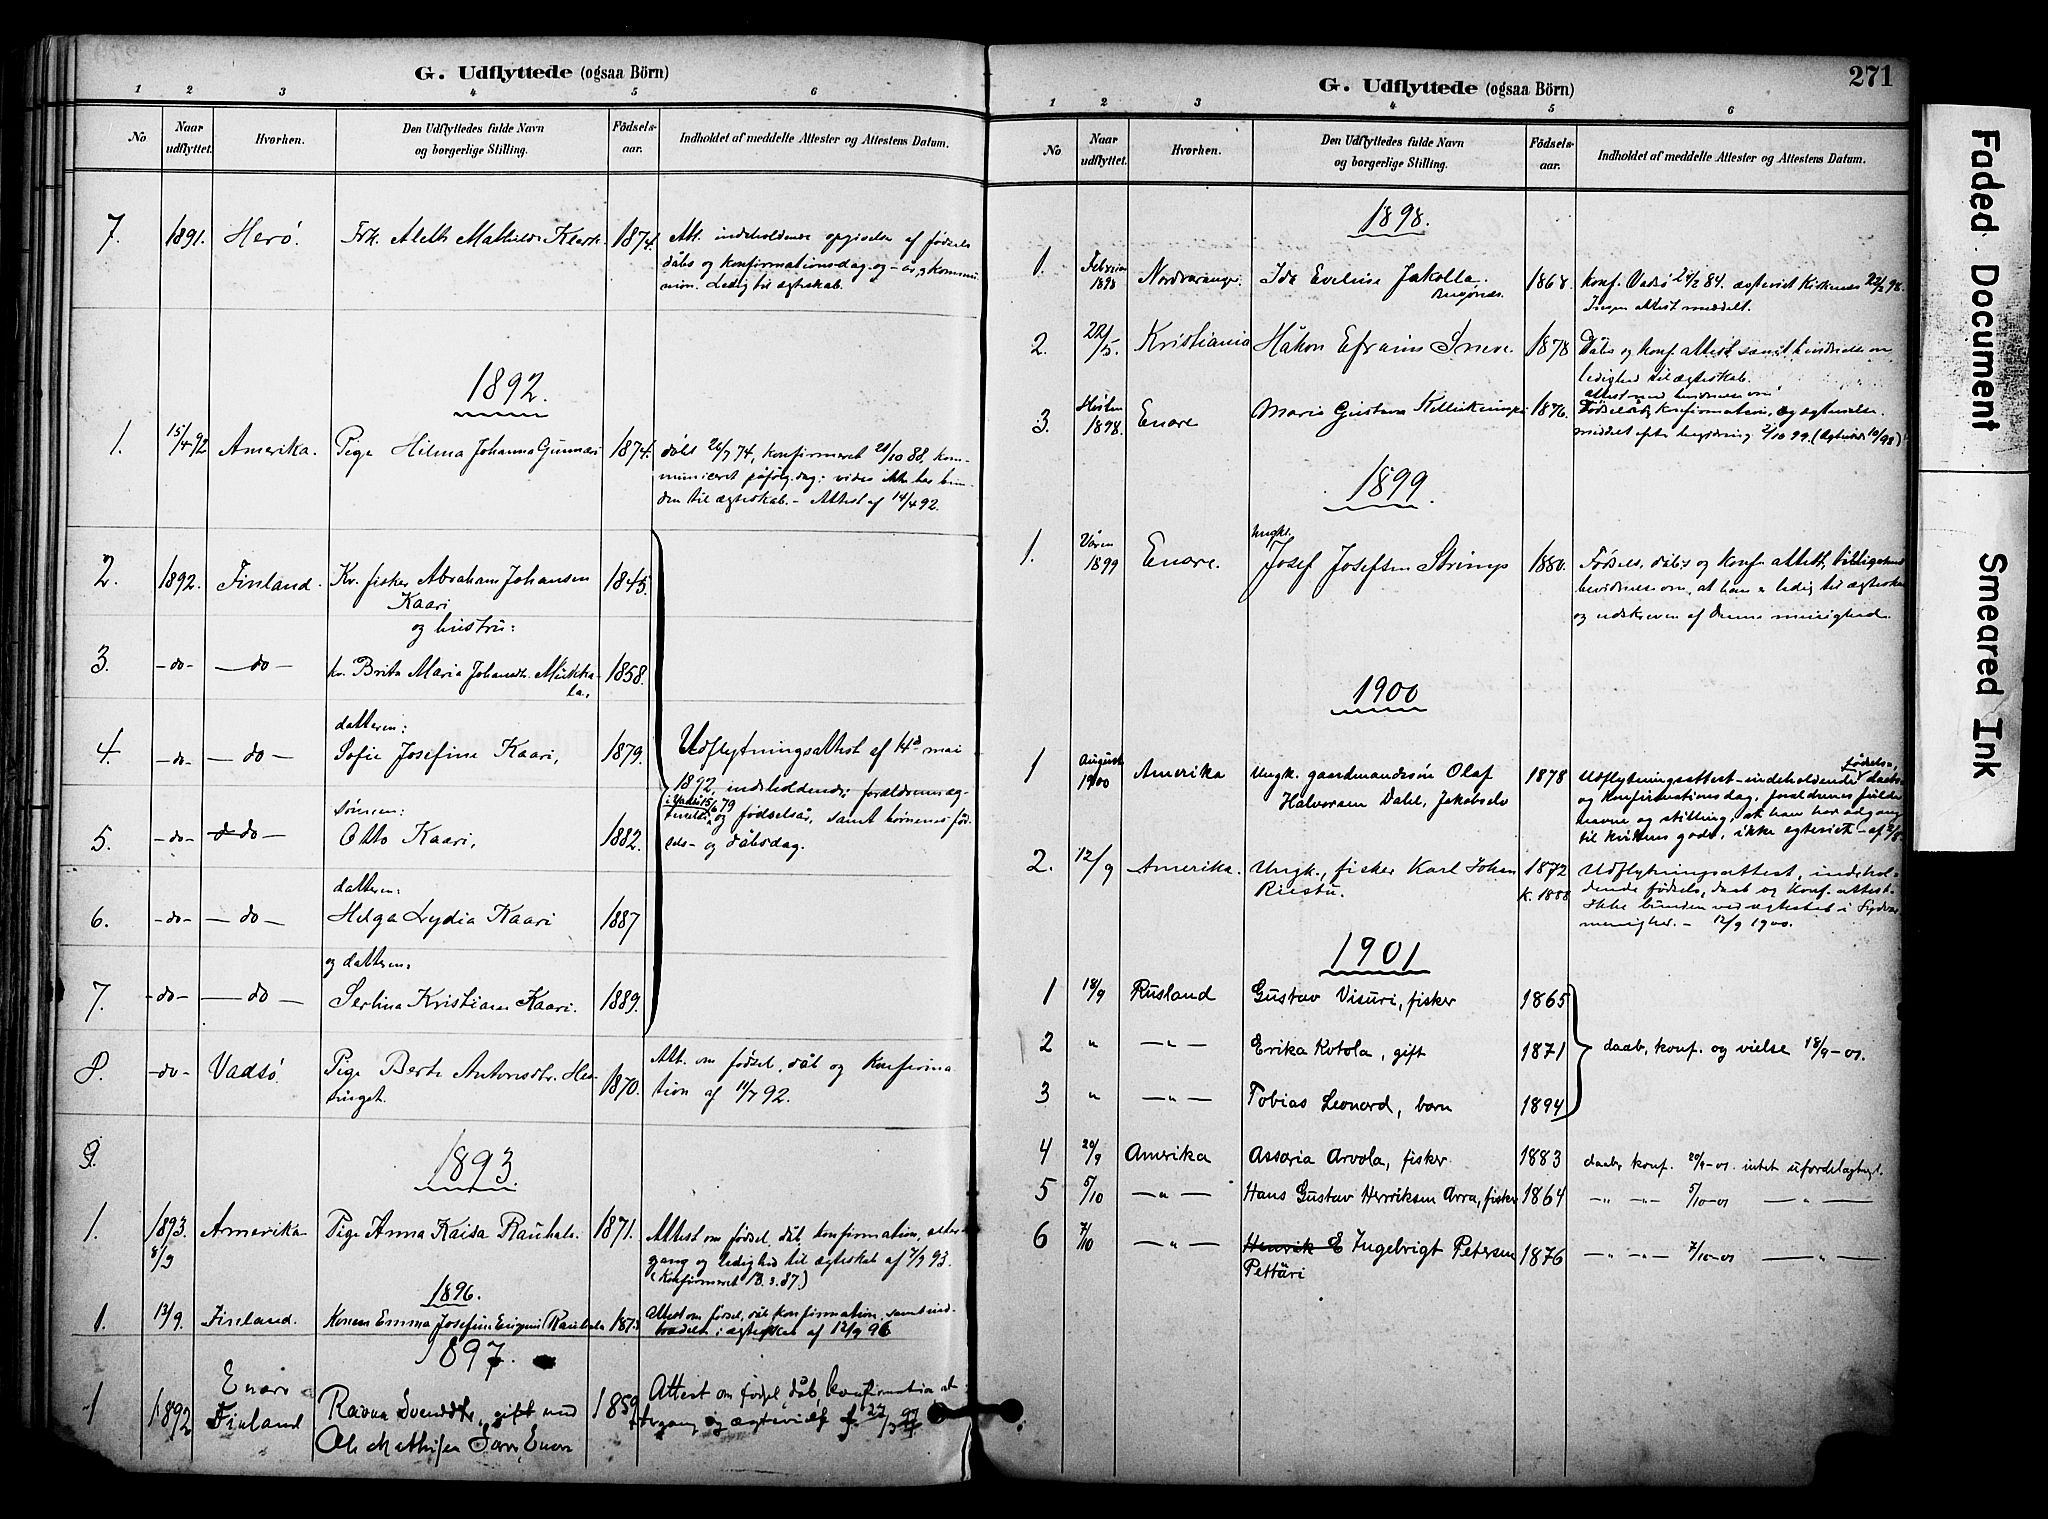 G. Udflyttede (ogsaa Börn)
1 2 3 4 5 6
No
Naar udflyttet.
Hvorhen.
Den Udflyttedes fulde Navn og borgerlige Stilling.
Fødsels-aar.
Indholdet af meddelte Attester og Attestens Datum.
7. 1891. Herö. Frk. Aleth Mathilde Klerk 1874. Att. indeholdende opgivelse af fødsels
dåbs og konfirmationsdag og kommu-
nion. Ledig til ægteskab.
1892.
1. 15/4 92 Amerika. Pige Hilma Johanna Gunnari 1874. døbt 26/7 74, konfirmeret 28/10 88, kom-
municeret påfølg. dag; vides ikke bun-
den til ægteskab. – Attest af 14/4 92.
2. 1892. Finland. Kv. fisker Abraham Johansen 1845.
Kaari
og hustru:
3. -do- -do- kv. Brita Maria Johansdtr. Mükka- 1858.
la.
datteren:
4. -do- -do- Sofie Josefine Kaari, 1879. Udflytningsattest af 14d mai
1892, indeholdende: forældrenes æg-
i Vadsö 15/6 79
og fødselsår, samt börnenes fød-
sels- og dåbsdag.
sönnen:
5. -do- -do- Otto Kaari, 1882.
datteren:
6. -do- -do- Helga Lydia Kaari 1887
og datteren:
7. -do- -do- Serlina Kristiane Kaari. 1889.
8. -do- Vadsö Pige Berte Antonsdtr. Hes- 1870. Att. om fødsel, dåb og konfirma
tion af 11/7 92.
9.
1893.
1. 1893. 8/9 Amerika Pige Anna Kaisa Rauhala. 1871. Attest om fødsel, dåb, konfirmation, alter-
gang og ledighed til ægteskab af 7/9 93.
(Konfirmeret 18.9.87.)
1896.
1. 13/9. Finland. Konen Emma Josefine (Rauhala 1873 Attest om födsel, dåb konfirmation, samt ind-
trædelse i ægteskab af 12/9 96
1897.
1 1892 Enare Finland Ravna Svendsdtr, gift med 1859 Attest om fødsel, dåb, konfirmation al-
tergang og af 27/3 97
Ole Mathisen Enare
G. Udflyttede (ogsaa Börn) 271
1 2 3 4 5 6
No
Naar udflyttet.
Hvorhen.
Den Udflyttedes fulde Navn og borgerlige Stilling.
Fødsels-aar.
Indholdet af meddelte Attester og Attestens Datum.
1898.
1. 1898 Nordvaranger Ida Eveline Jakolla. 1868. Konf. Vadsö 84. ægteviet Kirkenes 98.
Bugönæs. Ingen attest meddelt.
2. 22/5. Kristiania Håkon Efraim Sneve 1878 Dåbs og konf. attest samt bevidnelse om
ledighed til ægteskab.
3. Hösten 1898. Enare Maria Gustava 1876. Fødsel, dåb, konfirmation,
meddelt efter begjæring 2/10 99.
1899.
1. Våren 1899 Enare. Ungk. Josef Josefsen Strimp 1880. Fødsels, dåbs og konf. attest,
bevidnelse om, at han er ledig til ægteskab
og udskreven af denne menighed.
1900
1 August 1900 Amerika Ungk. gaardmandssön Olaf 1878 Udflytningsattest indeholdende fødsels, daabs
Halvorsen Dahl, Jakobselv og konfirmationsdag, forældrenes fulde
navne og stilling, at han har adgang
til kirkens gode, ikke egteviet – af
2. 12/9 Amerika. Ungk., fisker Karl Johan 1872 Udflytningsattest, indehol-
Riestu. k. 1888 dende fødsels, daab og konf. attest.
Ikke bunden ved ægtesked i Sydvar.
menighed. – 12/9 1900.
1901
1 18/9 Rusland Gustav Visuri, fisker 1865
2 " – " – Erika Kotola, gift 1871 daab, konf. og vielse 18/9–01.
3 " – " – Tobias Leonard, barn 1894
4 20/9 Amerika Assaria Arvola, fisker 1883 daab, konf. 20/9–01. intet ufordelagtigt.
5 5/10 – " – Hans Gustav Henriksen Arra, fisker 1864 – " – – " – 5/10–01 – " –
6 7/10 – " – Henrik E Ingebrigt Petersen 1876 – " – – " – 7/10–01 – " –
Pettäri
Faded Document
Smeared Ink